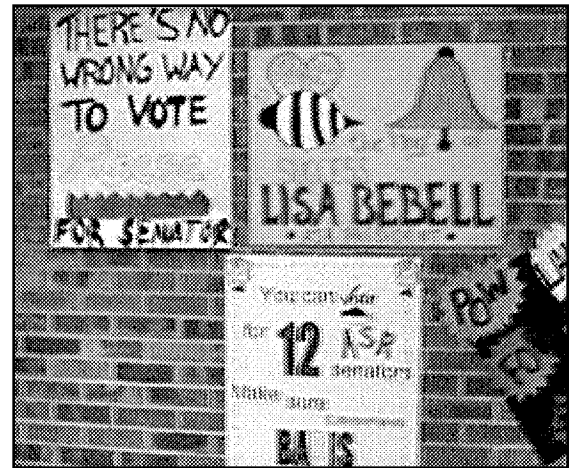 THERE'S NO
WRONG WAY
TO VOTE
FOR SENATOR
LISA BEBELL
You can
for 12 ASA
senators
Make sure
POW
FO